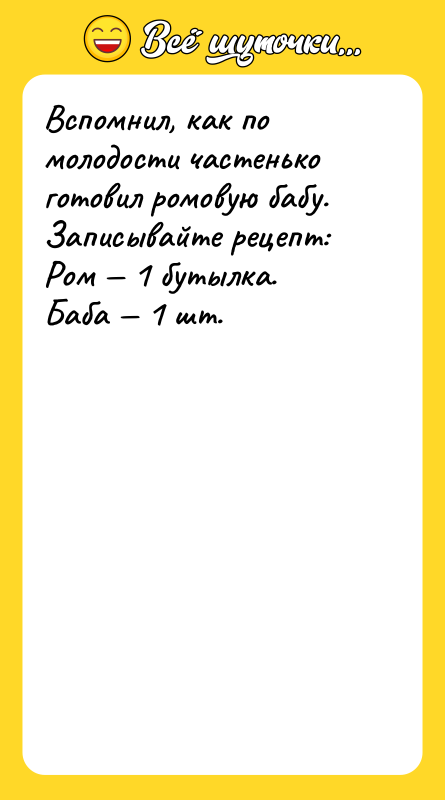 Всё шуточки...
Вспомнил, как по
молодости частенько
готовил ромовую бабу.
Записывайте рецепт:
Ром — 1 бутылка.
Баба — 1 шт.